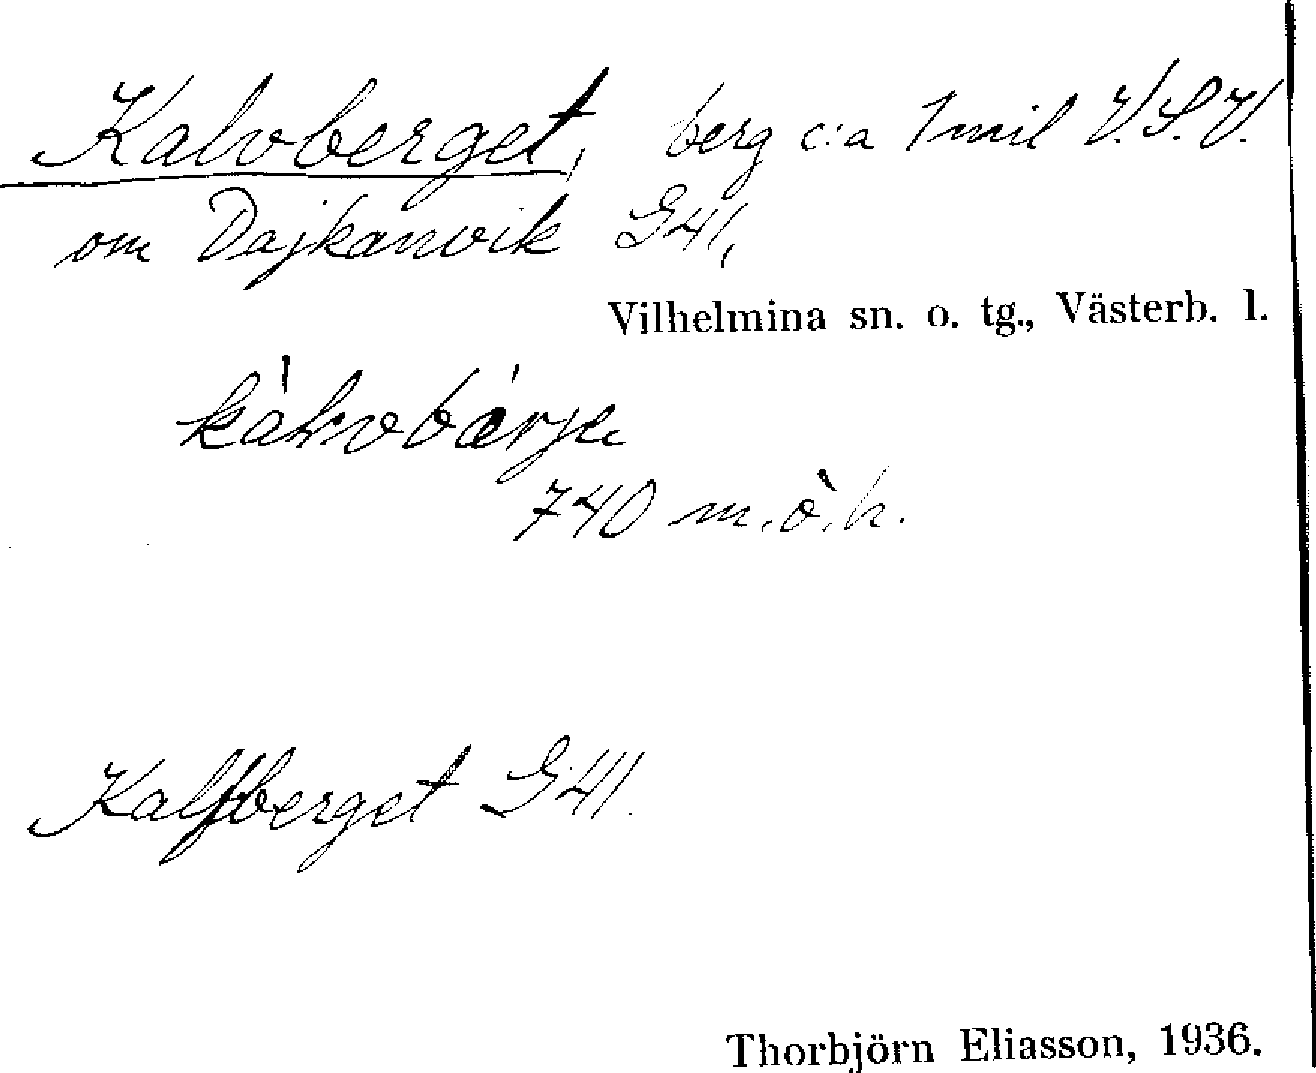 Kalvberget, berg c:a 1 mil V.S.V.
om Dajkanvik G41,
Vilhelmina sn. o. tg., Västerb. l.
740 m.ö.h.
Kalfberget G41.
Thorbjörn Eliasson, 1936.